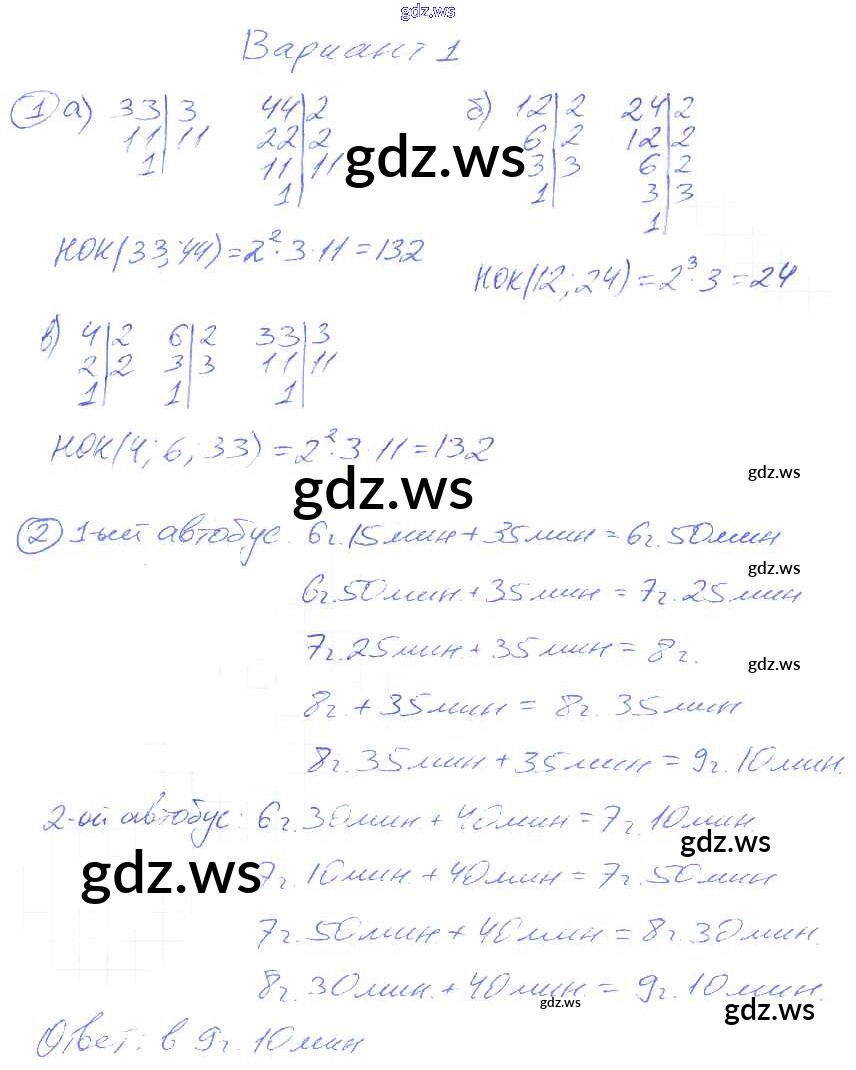 gdz.ws
Вариант 1
1 а) 33 | 3   44 | 2   б) 12 | 2   24 | 2
11 | 11   22 | 2   6 | 2   12 | 2
1   11 | 11   3 | 3   6 | 2
1   1   3 | 3
1
gdz.ws
НОК(33;44)=2²·3·11=132
НОК(12;24)=2³·3=24
в) 4 | 2   6 | 2   33 | 3
2 | 2   3 | 3   11 | 11
1   1   1
НОК(4;6;33)=2²·3·11=132
gdz.ws
gdz.ws
2 1-ый автобус: 6г.15мин+35мин=6г.50мин
gdz.ws
6г.50мин.+35мин=7г.25мин
7г.25мин.+35мин=8г.
gdz.ws
8г.+35мин=8г.35мин
8г.35мин+35мин=9г.10мин.
2-ой автобус: 6г.30мин.+40мин=7г.10мин.
gdz.ws
gdz.ws
7г.10мин.+40мин=7г.50мин
7г.50мин.+40мин=8г.30мин.
8г.30мин.+40мин.=9г.10мин.
gdz.ws
gdz.ws
Ответ: в 9г.10мин